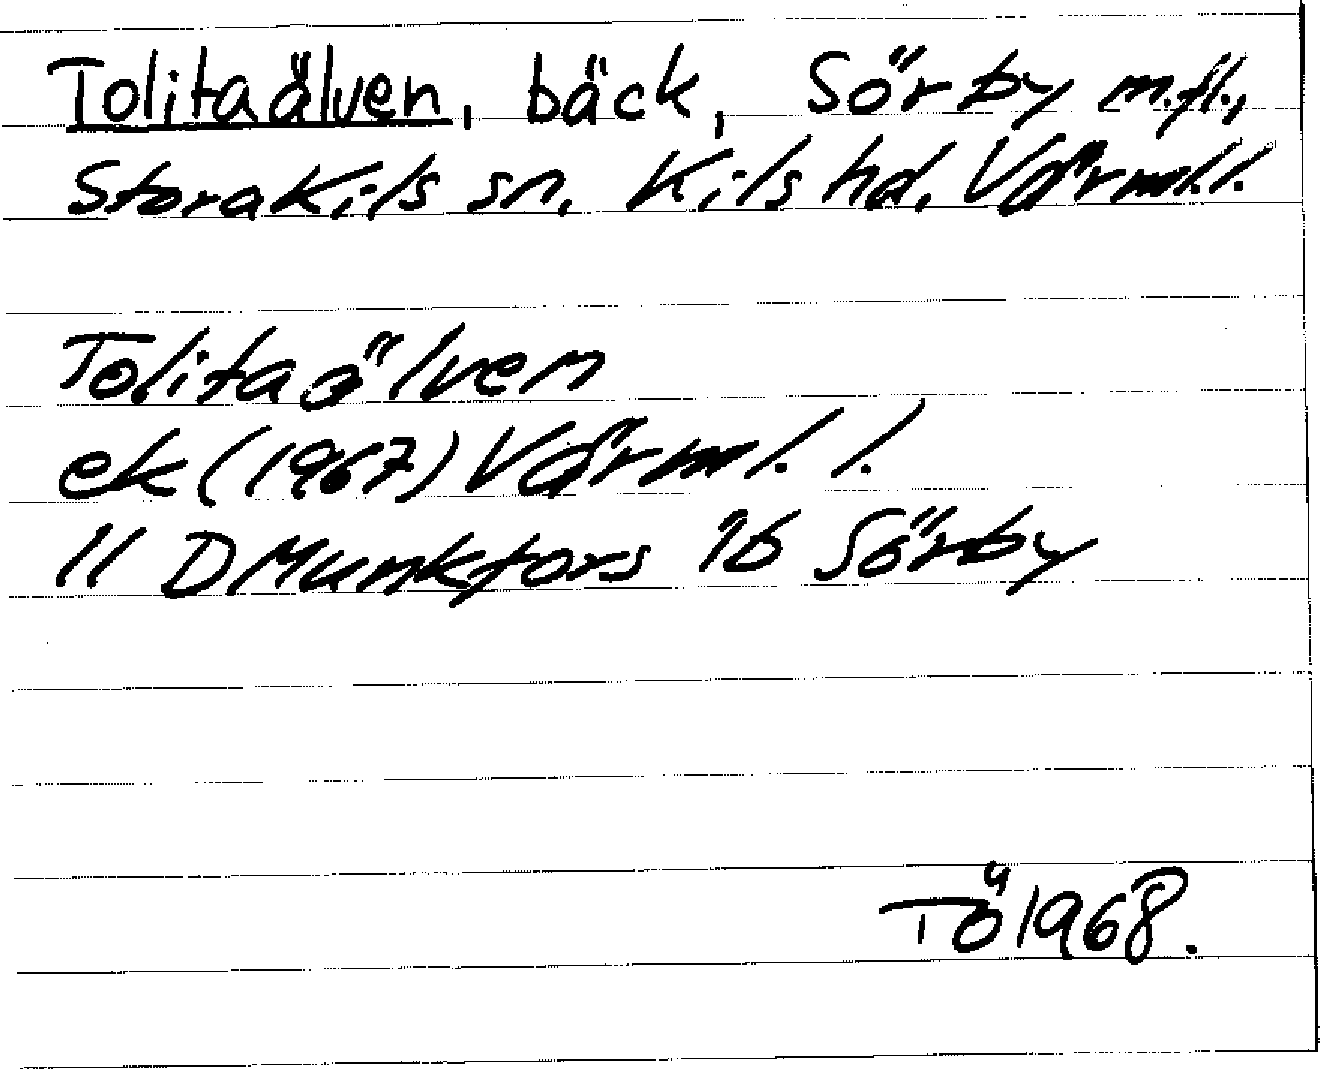 Tolitaälven, bäck, Sörby m.fl.,
Stora Kils sn. Kils hd. Värml.l.
Tolitaälven
ek (1967) Värml. l.
11 D Munkfors 1b Sörby
TÖ 1968.